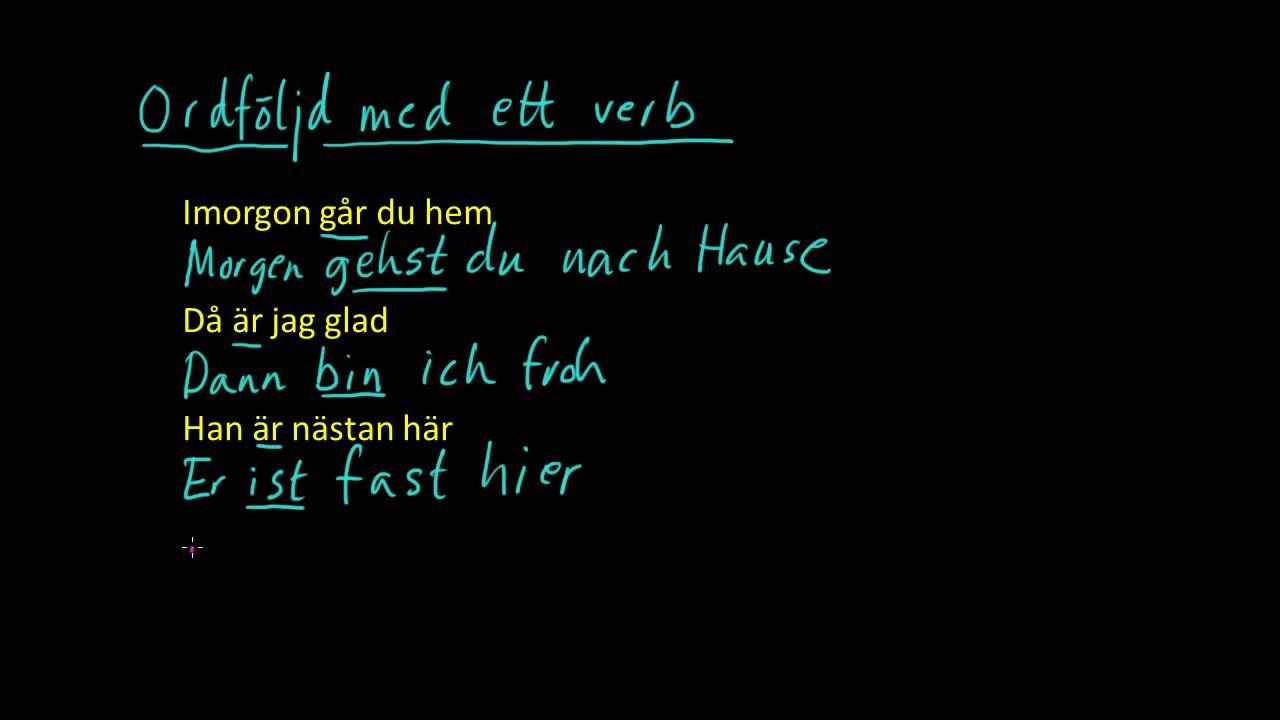 Ordföljd med ett verb
Imorgon går du hem
Morgen gehst du nach Hause
Då är jag glad
Dann bin ich froh
Han är nästan här
Er ist fast hier